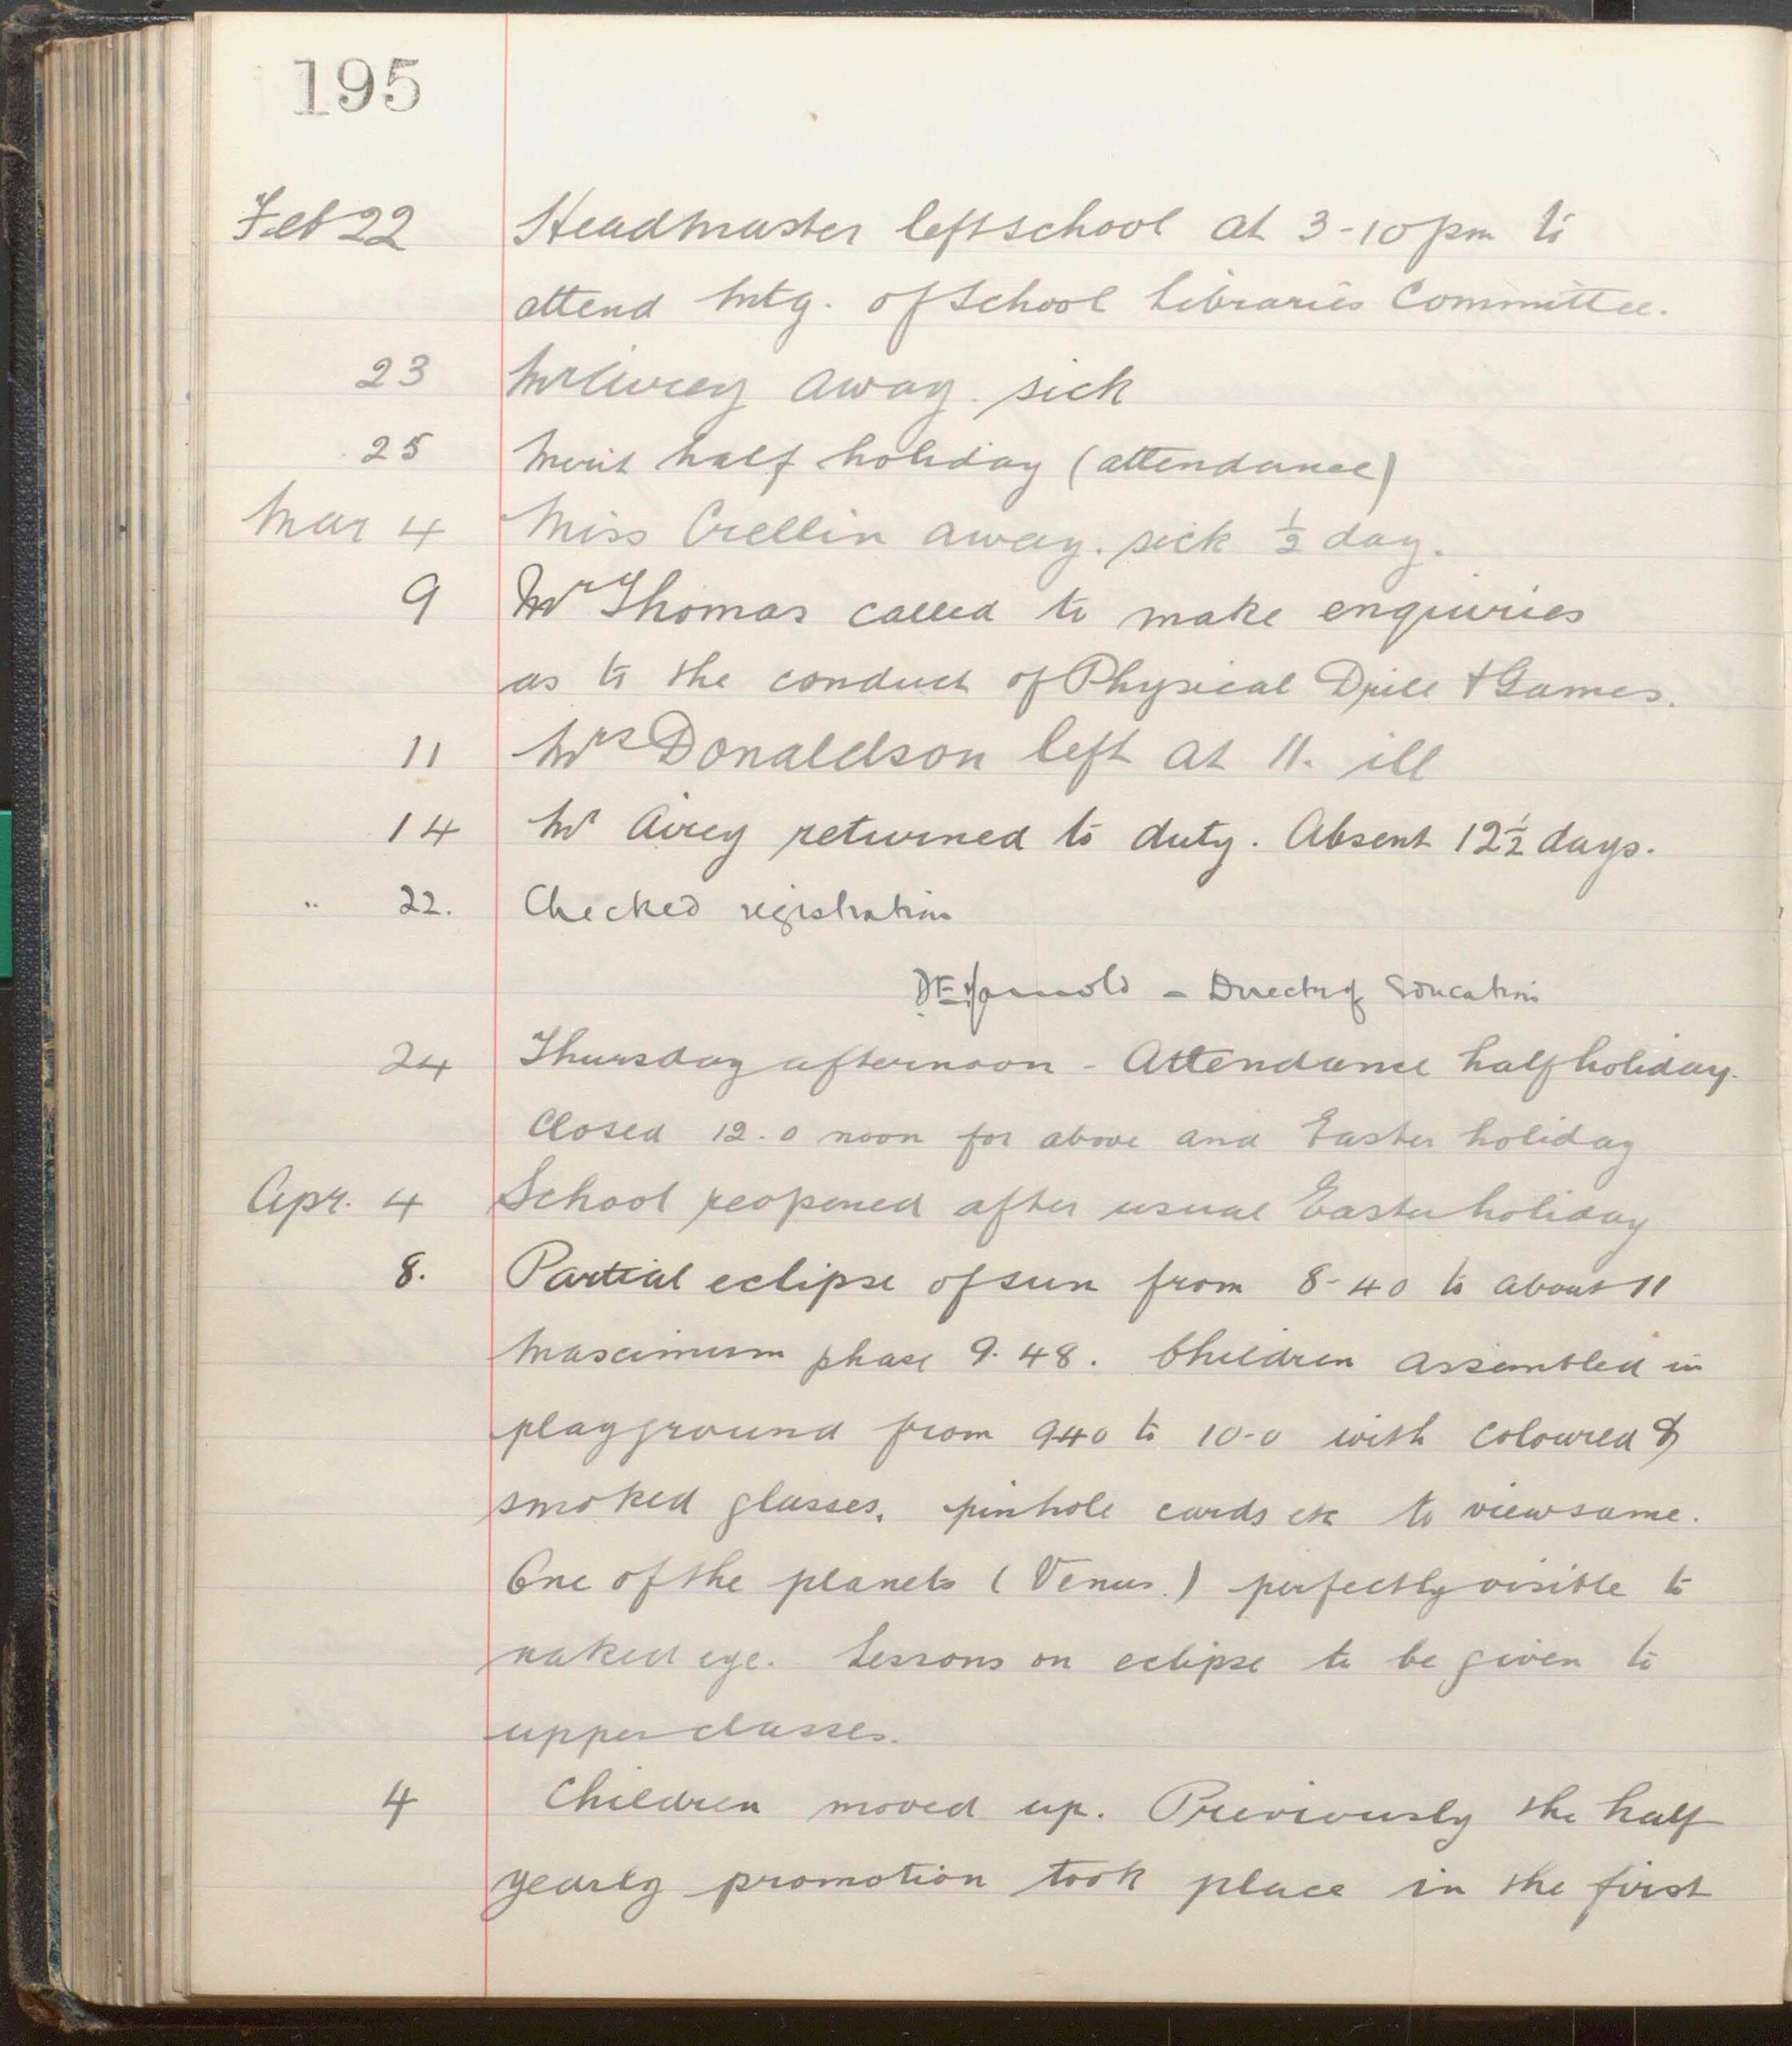 195
Feb 22 Headmaster left school at 3-10 pm to
attend mtg. of School Libraries Committee.
23 Mr Airey away. sick
25 Merit half holiday (attendance)
Mar 4 Miss Crellin away. sick ½ day.
9 Mr Thomas called to make enquiries
as to the conduct of Physical Drill & Games.
11 Mrs Donaldson left at 11. ill
14 Mr Airey returned to duty. Absent 12½ days.
" 22. Checked registration
- Director of Education
24 Thursday afternoon - Attendance half holiday.
Closed 12.0 noon for above and Easter holiday
Apr. 4 School reopened after usual Easter holiday
8. Partial eclipse of sun from 8-40 to about 11
Maximum phase 9.48. Children assembled in
playground from 940 to 10-0 with coloured &
smoked glasses, pinhole cards etc to view same.
One of the planets (Venus.) perfectly visible to
naked eye. Lessons on eclipse to be given to
upper classes.
4 Children moved up. Previously the half
yearly promotion took place in the first